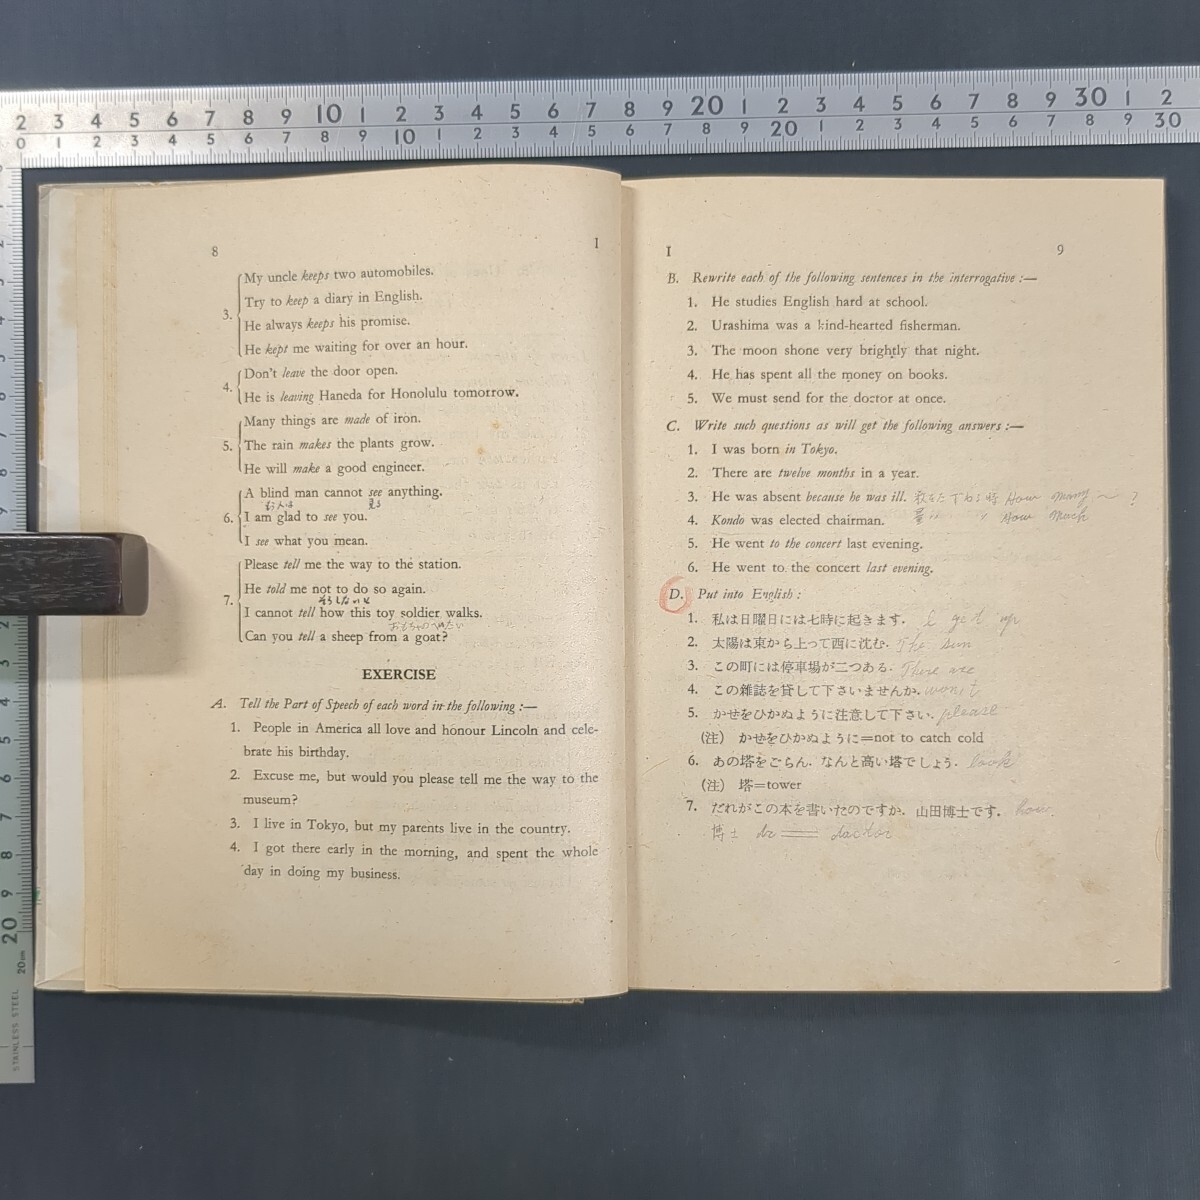 2 3 4 5 6 7 8 9 10 1 2 3 4 5 6 7 8 9 20 1 2 3 4 5 6 7 8 9 30 1 2
0 1 2 3 4 5 6 7 8 9 10 1 2 3 4 5 6 7 8 9 20 1 2 3 4 5 6 7 8 9 30
8 I
My uncle keeps two automobiles.
Try to keep a diary in English.
3.
He always keeps his promise.
He kept me waiting for over an hour.
Don't leave the door open.
4.
He is leaving Haneda for Honolulu tomorrow.
Many things are made of iron.
5. The rain makes the plants grow.
He will make a good engineer.
A blind man cannot see anything.
6. I am glad to see you.
I see what you mean.
Please tell me the way to the station.
He told me not to do so again.
そうしないと
7.
I cannot tell how this toy soldier walks.
おもちゃのへいたい
Can you tell a sheep from a goat?
EXERCISE
A. Tell the Part of Speech of each word in the following :—
1. People in America all love and honour Lincoln and cele-
brate his birthday.
2. Excuse me, but would you please tell me the way to the
museum?
3. I live in Tokyo, but my parents live in the country.
4. I got there early in the morning, and spent the whole
day in doing my business.
I 9
B. Rewrite each of the following sentences in the interrogative :—
1. He studies English hard at school.
2. Urashima was a kind-hearted fisherman.
3. The moon shone very brightly that night.
4. He has spent all the money on books.
5. We must send for the doctor at once.
C. Write such questions as will get the following answers :—
1. I was born in Tokyo.
2. There are twelve months in a year.
3. He was absent because he was ill. How many ~ ?
4. Kondo was elected chairman. How much
5. He went to the concert last evening.
6. He went to the concert last evening.
D. Put into English :
1. 私は日曜日には七時に起きます. I get up
2. 太陽は東から上って西に沈む. The sun
3. この町には停車場が二つある. There are
4. この雑誌を貸して下さいませんか. won't
5. かぜをひかぬように注意して下さい. please
(注) かぜをひかぬように=not to catch cold
6. あの塔をごらん. なんと高い塔でしょう. look
(注) 塔=tower
7. だれがこの本を書いたのですか. 山田博士です. how.
博士 dr doctor
20cm
STAINLESS STEEL